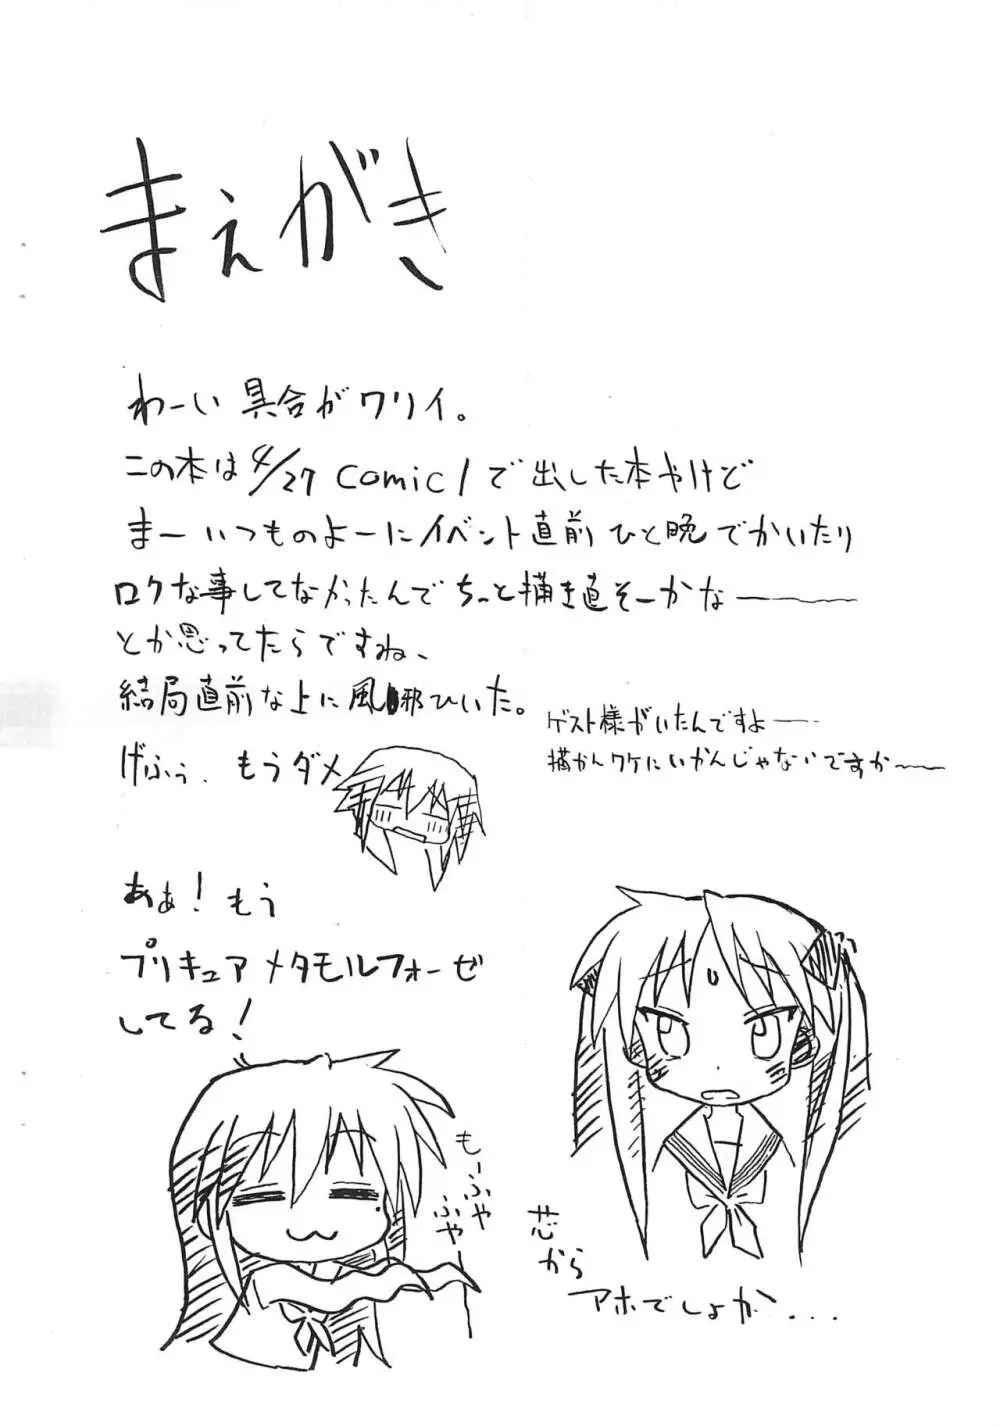 まえがき
わーい 具合がワリイ。
この本は4/27 comic1で出した本やけど
まーいつものよーにイベント直前ひと晩でかいたり
ロクな事してなかったんでちっと描き直そーかなー
とか思ってたらですね、
結局直前な上に風邪ひいた。
ゲスト様がいたんですよー
描かんワケにいかんじゃないですか〜
げふぅ、もうダメ
あぁ!もう
プリキュアメタモルフォーゼ
してる!
もーふや
ふやー
芯から
アホでしょか...